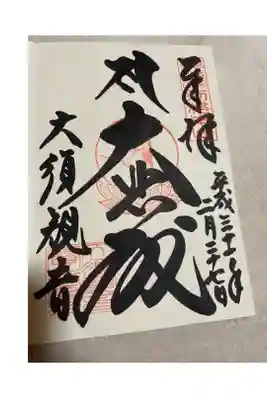 奉拝
平成三十一年
二月二十七日
大悲殿
大須観音